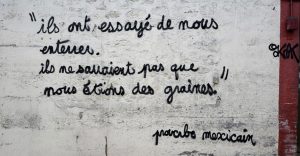 "ils ont essayé de nous
enterrer.
ils ne savaient pas que
nous étions des graines."
proverbe mexicain